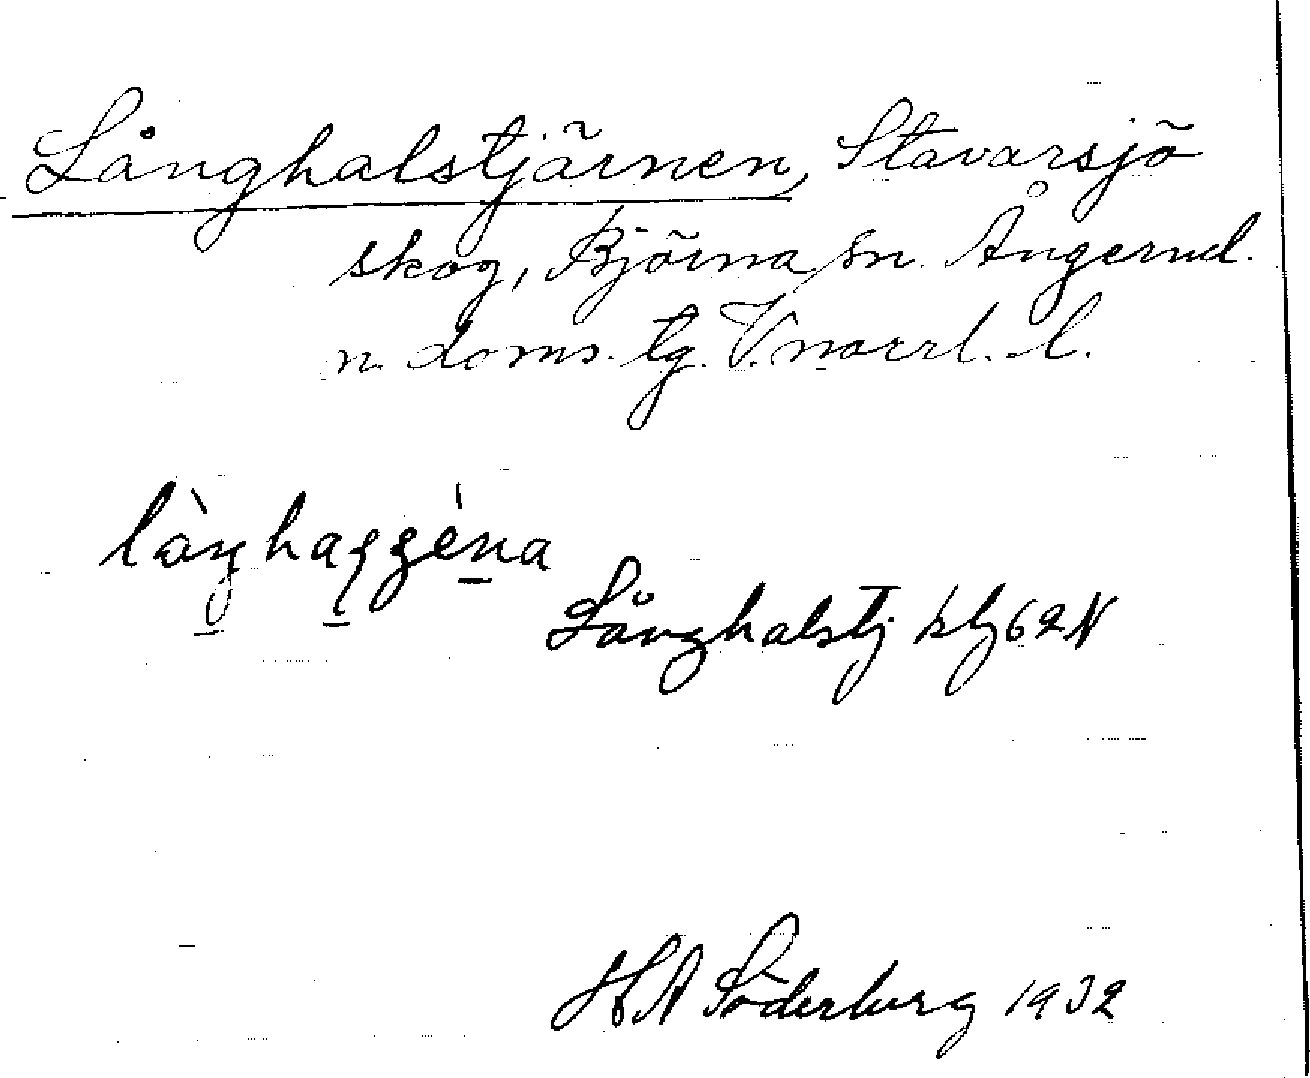 Långhalstjärnen, Stavarsjö
skog, Björna sn. Ångerml.
n. doms. tg. V.norrl. l.
Långhalstj kbl 62 N
H A Söderberg 1932